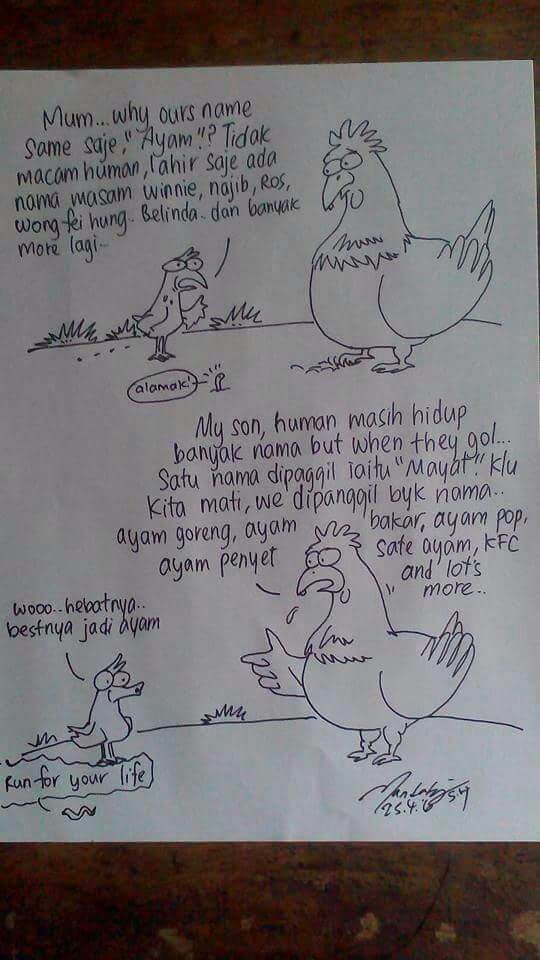 Mum...why ours name
same saje, "Ayam"? Tidak
macam human, lahir saje ada
nama masam winnie, najib, Ros,
wong fei hung.. Belinda.. dan banyak
more lagi..
alamak!
My son, human masih hidup
banyak nama but when they gol...
Satu nama dipaggil iaitu "Mayat". Klu
kita mati, we dipanggil byk nama..
ayam goreng, ayam bakar, ayam pop,
ayam penyet sate ayam, KFC
and lot's
more..
wooo..hebatnya..
bestnya jadi ayam
Run for your life
25.4.6